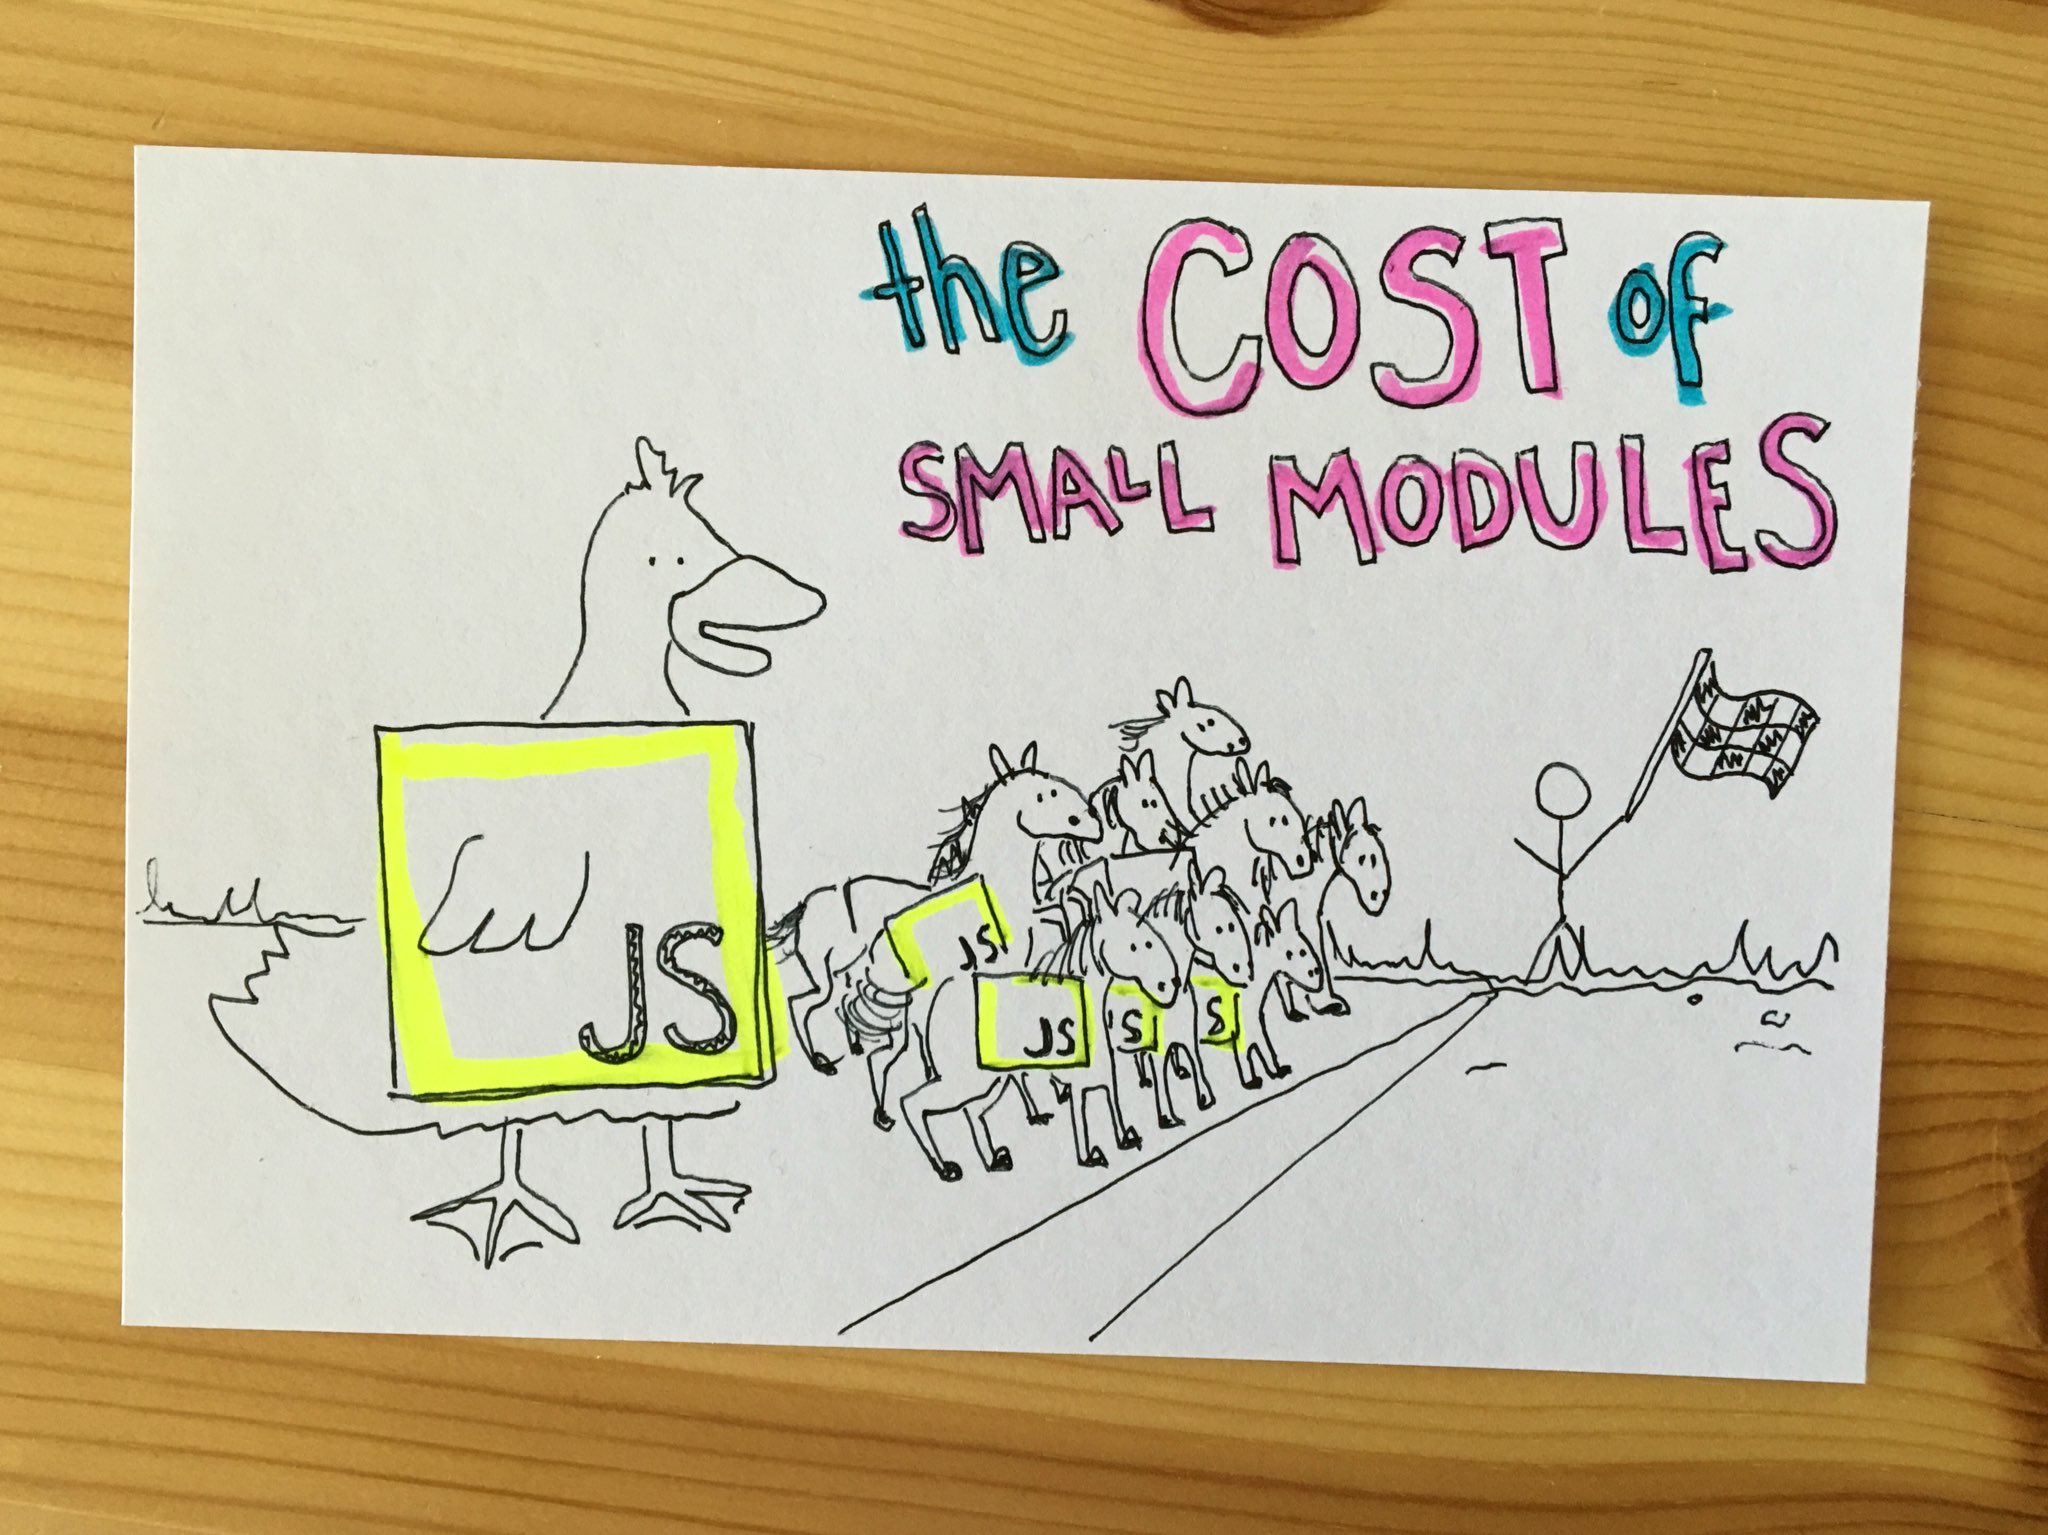 the COST of
SMALL MODULES
JS
JS
JS
S
S